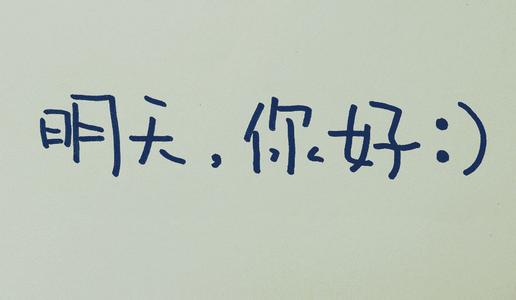 明天,你好:)